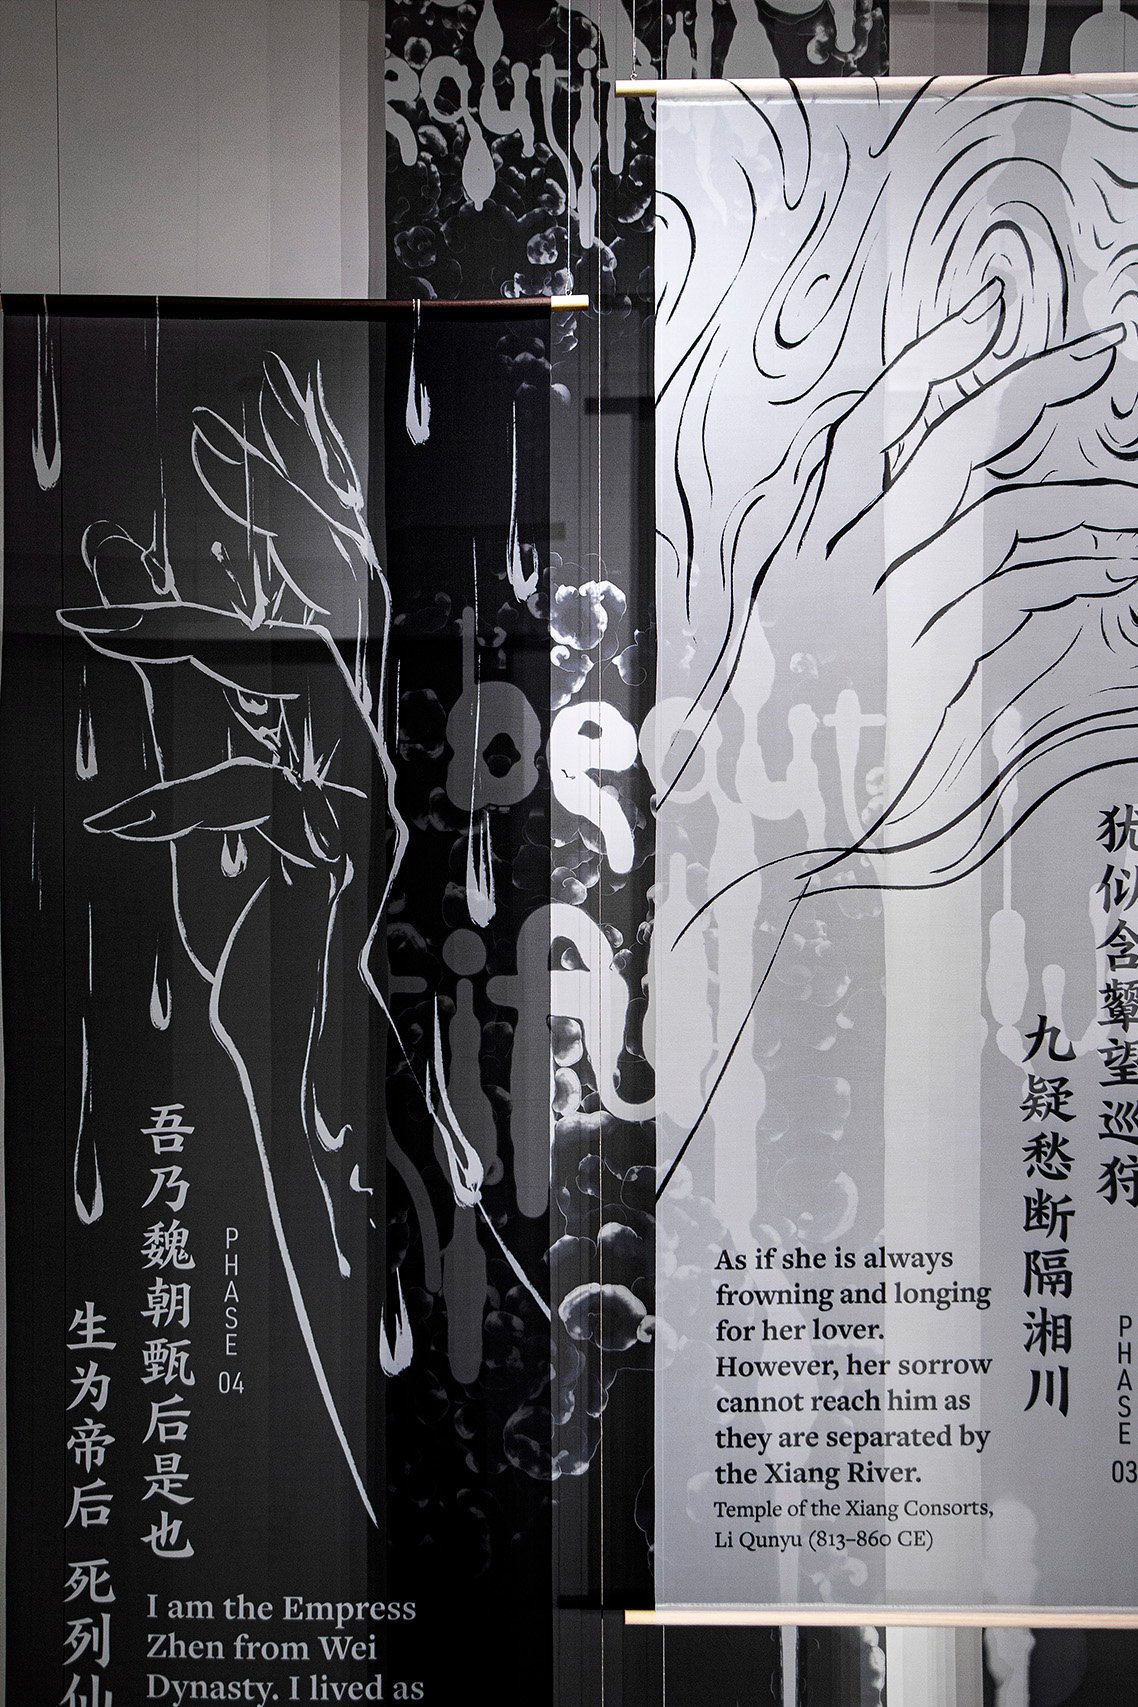 beautiful
beautiful
吾乃魏朝甄后是也
生为帝后 死列仙
PHASE 04
I am the Empress
Zhen from Wei
Dynasty. I lived as
犹似含颦望巡狩
九疑愁断隔湘川
PHASE 03
As if she is always
frowning and longing
for her lover.
However, her sorrow
cannot reach him as
they are separated by
the Xiang River.
Temple of the Xiang Consorts,
Li Qunyu (813–860 CE)